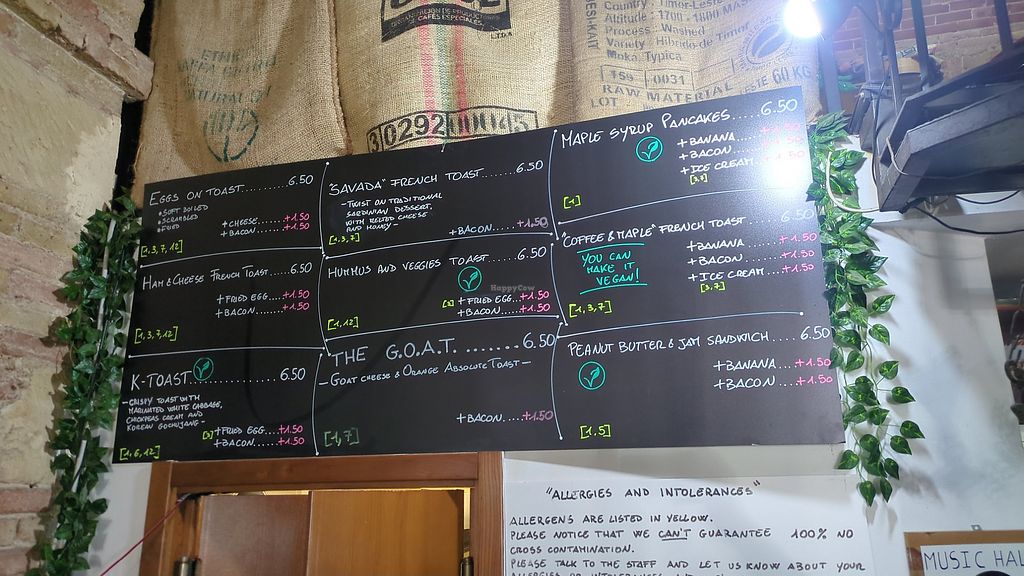 ORGANIZACION DE PRODUCTORES
CAFES ESPECIALES
LTDA
Country: Timor-Leste
Altitude: 1700-1800
Process: Washed
Variety: Hibrido de Timor
Moka, Typica
159 0031
RAW MATERIAL
LOT
60 KG
3 0292
EGGS ON TOAST.......... 6.50
*SOFT BOILED
*SCRAMBLED
*FRIED
+CHEESE......+1.50
+BACON......+1.50
[1,3,7,12]
"SAVADA" FRENCH TOAST..... 6.50
-TWIST ON TRADITIONAL
SARDINIAN DESSERT,
WITH MELTED CHEESE
AND HONEY-
+BACON....+1.50
[1,3,7]
MAPLE SYRUP PANCAKES......6.50
+BANANA.....+1.50
+BACON.....+1.50
+ICE CREAM....
[3,7]
[1]
HAM & CHEESE FRENCH TOAST.. 6.50
+FRIED EGG...+1.50
+BACON......+1.50
[1,3,7,12]
HUMMUS AND VEGGIES TOAST... 6.50
[3] +FRIED EGG....+1.50
+BACON.....+1.50
[1,12]
HappyCow
"COFFEE & MAPLE" FRENCH TOAST 6.50
YOU CAN
MAKE IT
VEGAN!
+BANANA ...+1.50
+BACON.....+1.50
+ICE CREAM....+1.50
[3,7]
[1,3,7]
K-TOAST.................. 6.50
-CRISPY TOAST WITH
MARINATED WHITE CABBAGE,
CHICKPEAS CREAM AND
KOREAN GOCHUJANG-
[3]+FRIED EGG....+1.50
+BACON......+1.50
[1,6,12]
THE G.O.A.T. ....... 6.50
-GOAT CHEESE & ORANGE ABSOLUTE TOAST-
+BACON....+1.50
[1,7]
PEANUT BUTTER & JAM SANDWICH.... 6.50
+BANANA .....+1.50
+BACON.....+1.50
[1,5]
"ALLERGIES AND INTOLERANCES"
ALLERGENS ARE LISTED IN YELLOW.
PLEASE NOTICE THAT WE CAN'T GUARANTEE 100% NO
CROSS CONTAMINATION.
PLEASE TALK TO THE STAFF AND LET US KNOW ABOUT YOUR
ALLERGIES OR INTOLERANCES
MUSIC HAL